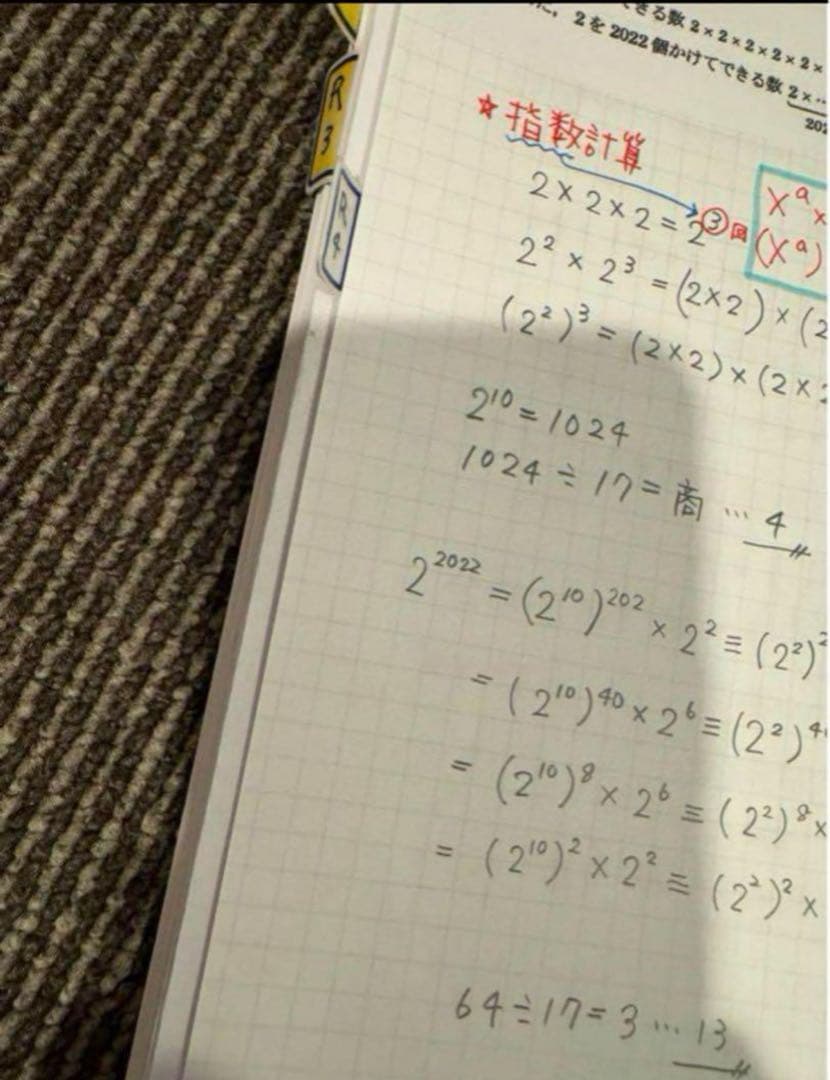 できる数 2×2×2×2×2×
2を2022個かけてできる数 2×…
R
3
R
4
☆指数計算
2×2×2=2③回
xᵃ×
(xᵃ)
2²×2³=(2×2)×(2
(2²)³=(2×2)×(2×2
2¹⁰=1024
1024÷17=商…4
2²⁰²²=(2¹⁰)²⁰²×2²≡(2²)²
=(2¹⁰)⁴⁰×2⁶≡(2²)⁴
=(2¹⁰)⁸×2⁶≡(2²)⁸×
=(2¹⁰)²×2²≡(2²)²×
64÷17=3…13